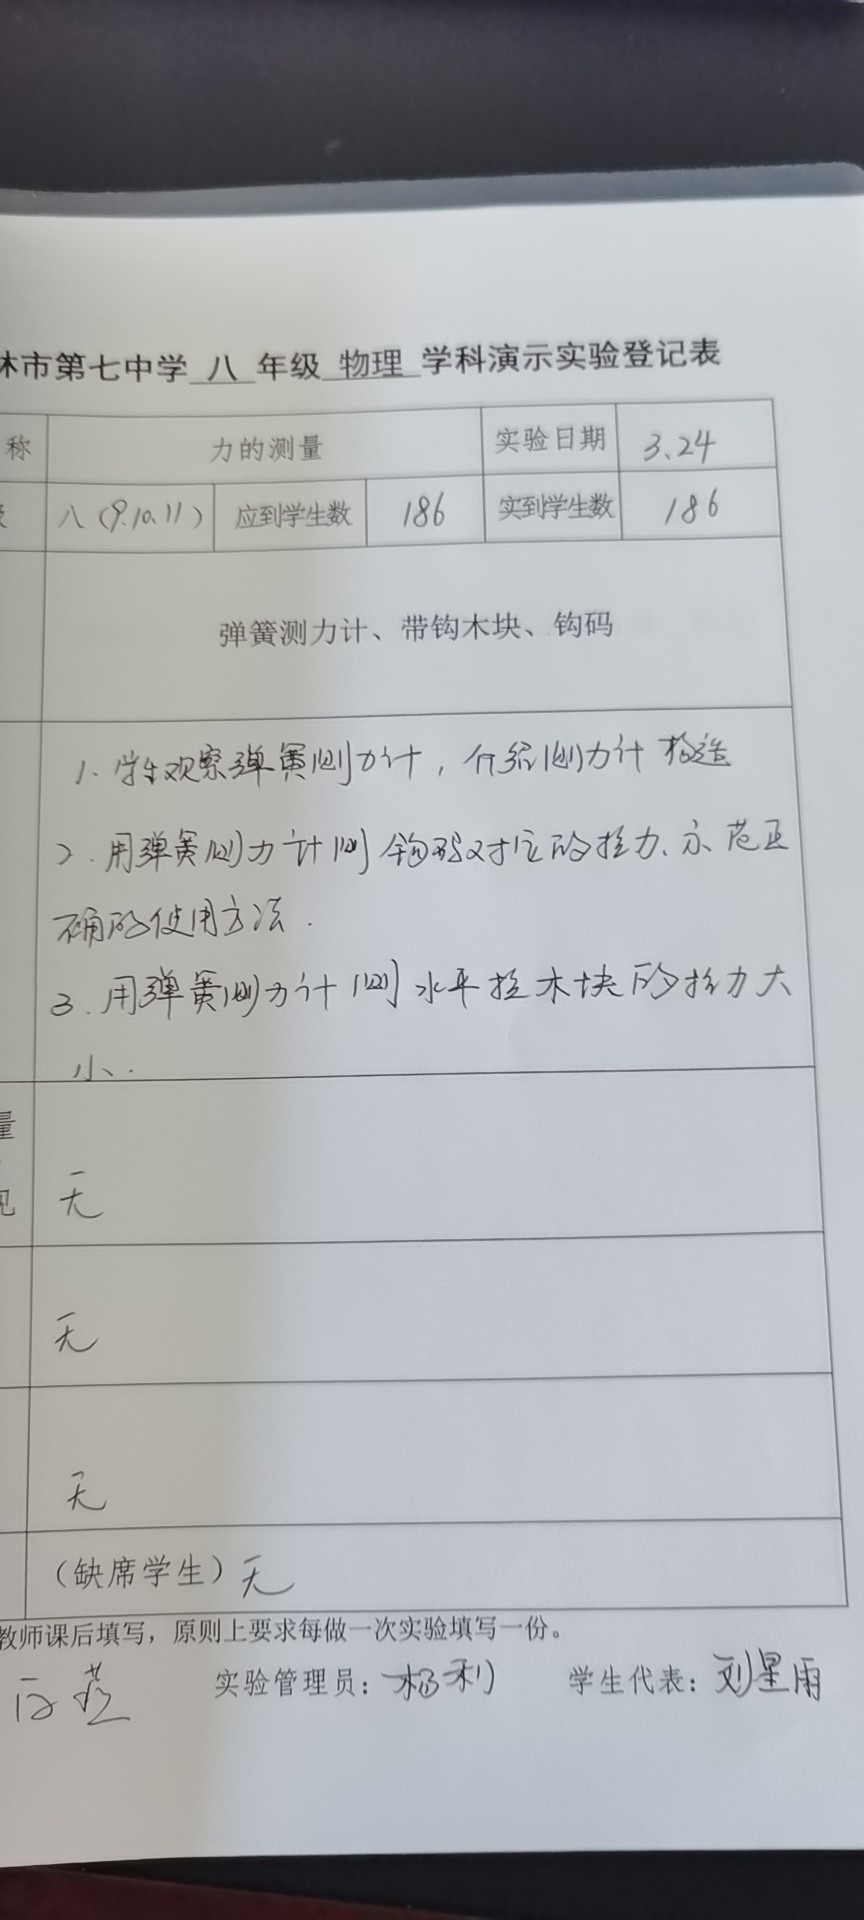 林市第七中学 八 年级 物理 学科演示实验登记表
称 力的测量 实验日期 3.24
八（9.10.11） 应到学生数 186 实到学生数 186
弹簧测力计、带钩木块、钩码
1. 学生观察弹簧测力计，介绍测力计构造
2. 用弹簧测力计测钩码对应的拉力、示范正
确的使用方法.
3. 用弹簧测力计测水平拉木块的拉力大
小.
量
见 无
无
无
（缺席学生）无
教师课后填写，原则上要求每做一次实验填写一份。
实验管理员：杨利 学生代表：刘星雨